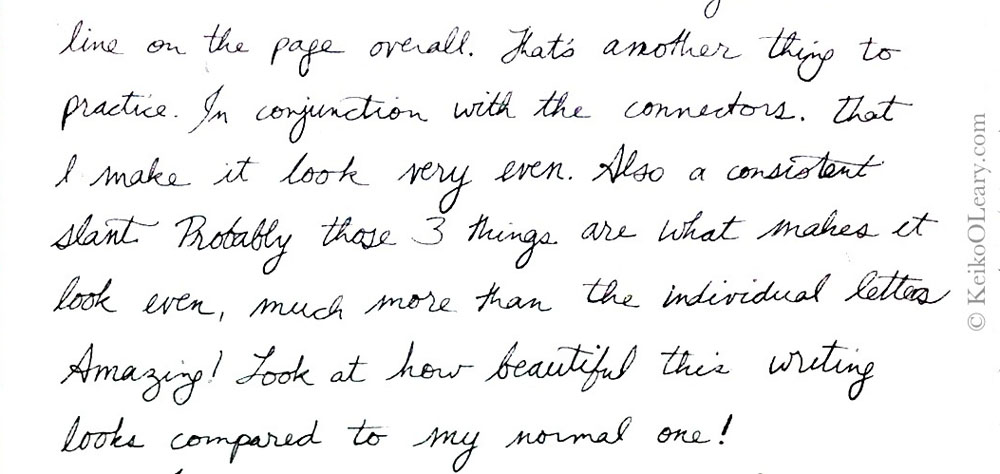 line on the page overall. That's another thing to
practice. In conjunction with the connectors. That
I make it look very even. Also a consistent
slant. Probably those 3 things are what makes it
look even, much more than the individual letters
Amazing! Look at how beautiful this writing
looks compared to my normal one!
© KeikoOLeary.com